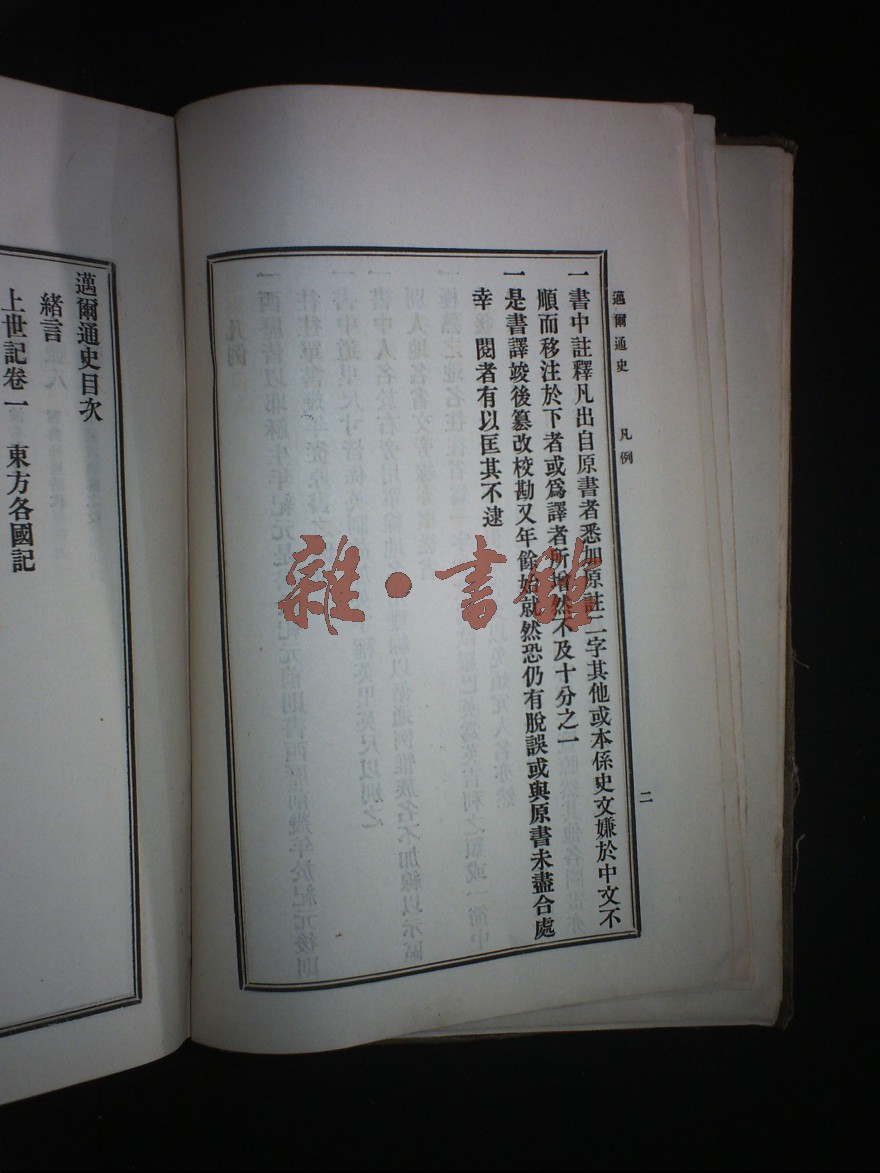 邁爾通史　凡例
二
一書中註釋凡出自原書者悉加原註二字其他或本係史文嫌於中文不
順而移注於下者或爲譯者所增然不及十分之一
一是書譯竣後纂改校勘又年餘始就然恐仍有脫誤或與原書未盡合處
幸　閱者有以匡其不逮
邁爾通史目次
緒言
上世記卷一　東方各國記
雜·書館